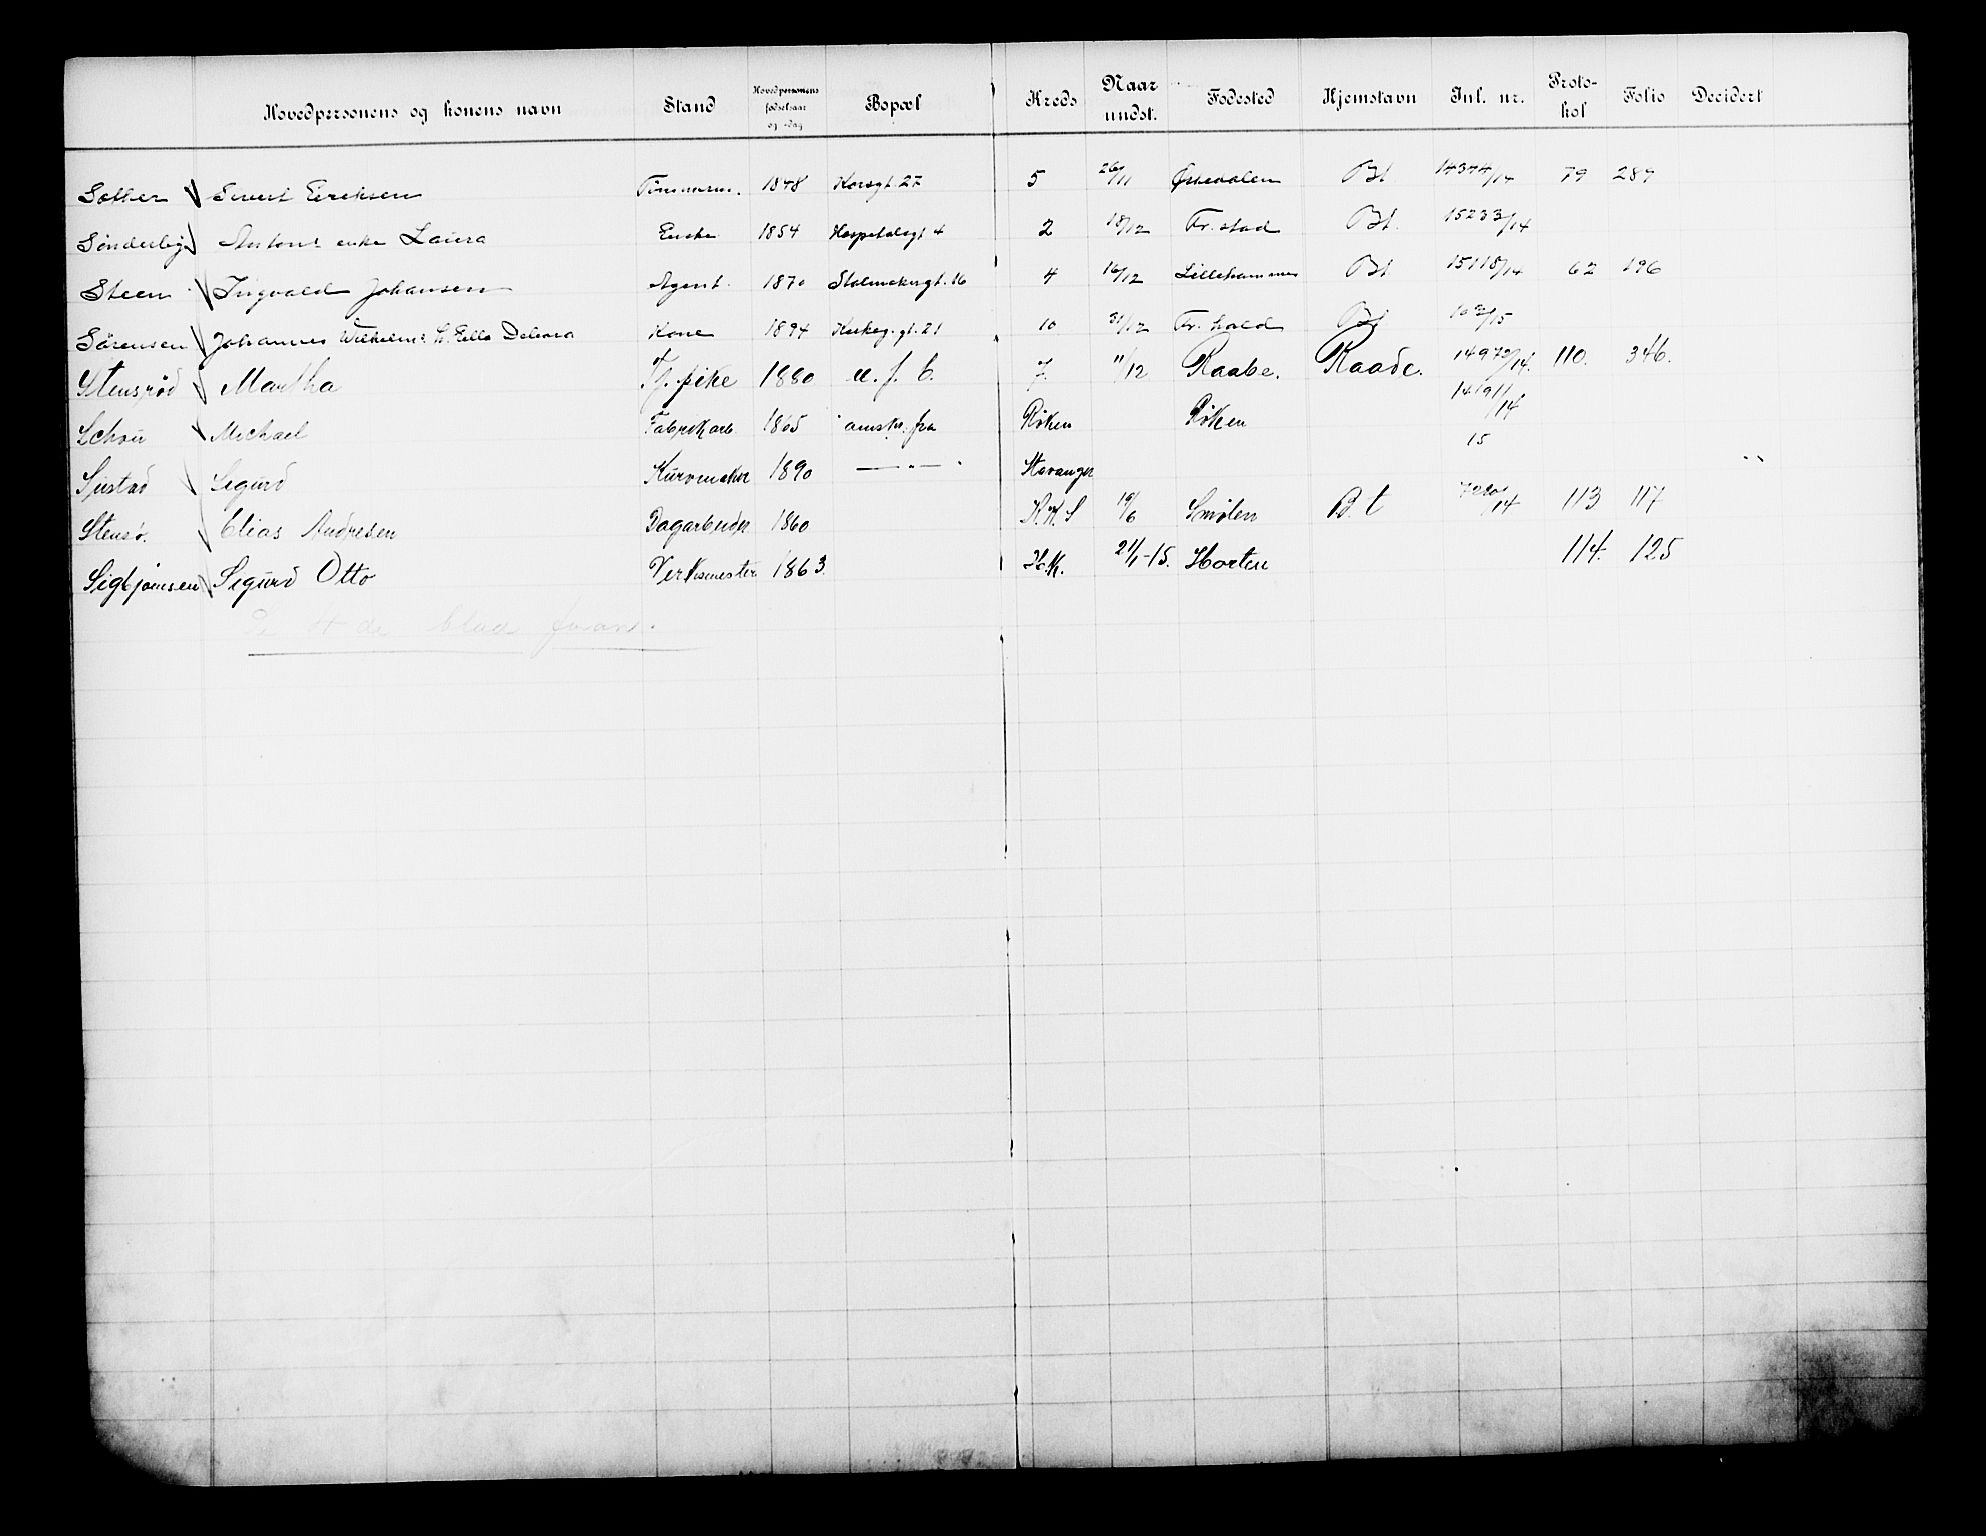 Hovedpersonens og konens navn Stand Hovedpersonens fødselsaar og -dag Bopæl Kreds Naar undst. Fødested Hjemstavn Inl. nr. Protokol Folio Decidert
Sivert Eriksen Tømmerm. 1848 Korsgt. 27 5 26/11 Bt 14374/14 79 287
Antons enke Laura Enke 1854 Hospitalsgt 4 2 18/12 Fr.stad Bt. 15233/14
Steen Ingvald Johansen Agent. 1870 16 4 16/12 Lillehammer Bt 15118/14 62 196
Sørensen Johannes Wilhelms h. Ella Kone 1894 21 10 31/12 Fr. hald Bt
Stensrød Martha Tj. pike 1880 u. f. b. 7. 11/12 Raade. Raade. 110. 346.
Schou Michael Fabrikarb 1865 amstr. fra Røken Røken 14191/14
15
Sjustad Sigurd Kurvmaker 1890 — " — Stavanger
Stensø. Elias Andresen Dagarbeider 1860 K.K.S 19/6 Smølen Bt 113 117
Sigbjørnsen Sigurd Otto Verksmester 1863. H.K. 21/1-15. Horten 114. 125
Se 4 de blad foran.